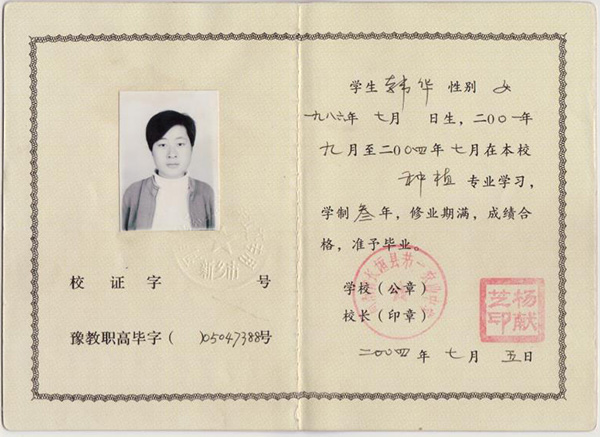 新乡市
校证字 号
豫教职高毕字( )05047388号
学生 韩华 性别 女
一九八六年 七月 日生,二〇〇一年
九月至二〇〇四年七月在本校
种植 专业学习,
学制 叁 年,修业期满,成绩合
格,准予毕业。
学校(公章)
校长(印章)
杨献芝印
二〇〇四年 七月 五日